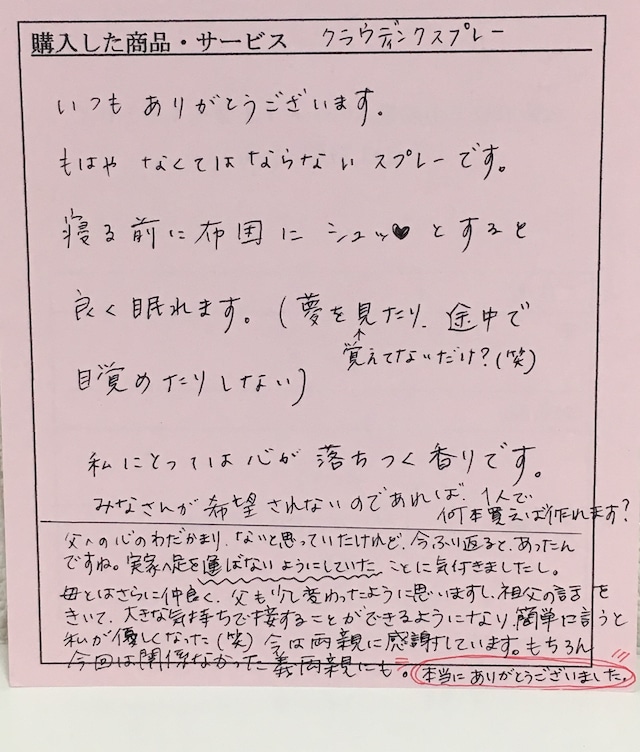 購入した商品・サービス クラウディンクスプレー
いつもありがとうございます。
もはやなくてはならないスプレーです。
寝る前に布団にシュッ♥とすると
良く眠れます。(夢を見たり、途中で
↑覚えてないだけ?(笑)
目覚めたりしない)
私にとっては心が落ちつく香りです。
みなさんが希望されないのであれば、1人で
何本買えば作れます?
父への心のわだかまり、ないと思っていたけれど、今ふり返ると、あったん
ですね。実家へ足を運ばないようにしていたことに気付きましたし。
母とはさらに仲良く、父も少し変わったように思いますし、祖父の話を
きいて、大きな気持ちで接することができるようになり、簡単に言うと
私が優しくなった(笑)今は両親に感謝しています。もちろん
今回は関係なかった義両親にも。本当にありがとうございました。